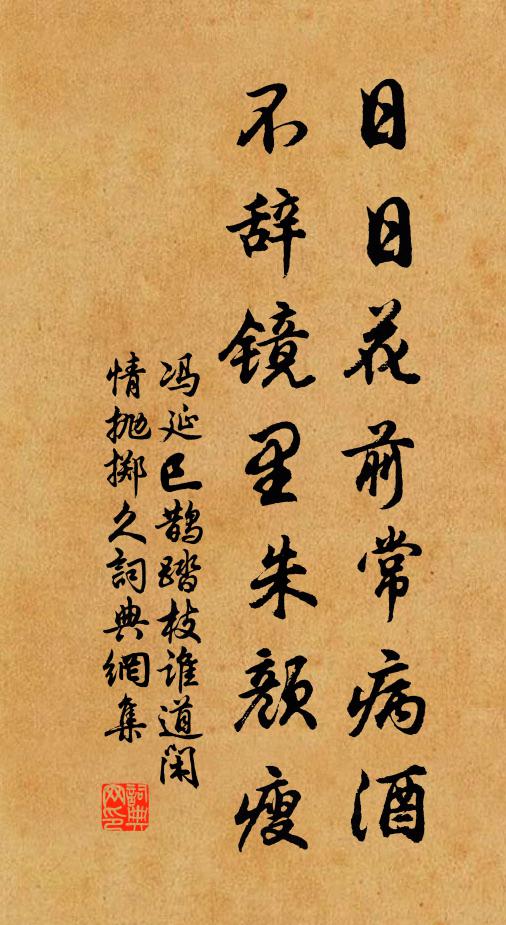 日日花前常病酒
不辞镜里朱颜瘦
冯延巳鹊踏枝谁道闲
情抛掷久詞典網集
詞典
网印